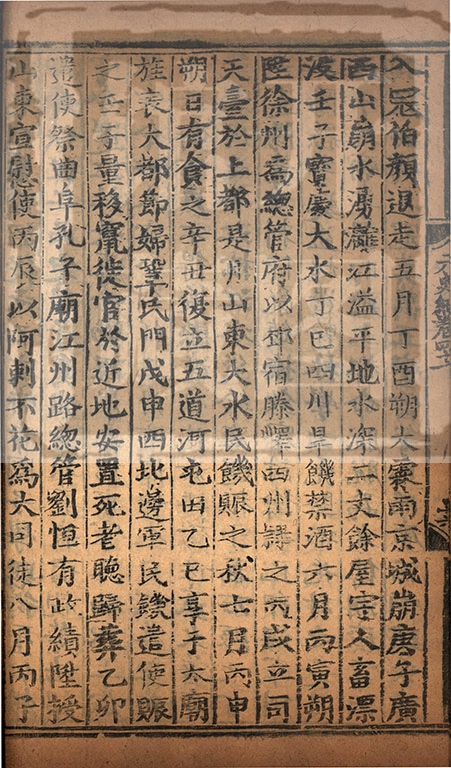 入冦伯顔退走五月丁酉朔大霖雨京城崩庚午廣
西山崩水湧灕江溢平地水深二丈餘屋宇人畜漂
没壬子寶慶大水丁巳四川旱饑禁酒六月丙寅朔
陞徐州爲總管府以邳宿滕嶧四州隸之丙戌立司
天臺於上都是月山東大水民饑賑之秋七月丙申
朔日有食之辛丑復立五道河屯田乙巳享于太廟
旌表大都節婦鞏氏門戊申西北邊軍民饑遣使賑
之壬子量移竄徙官於近地安置死者聽歸葬乙卯
遣使祭曲阜孔子廟江州路總管劉恒有政績陞授
山東宣慰使丙辰以阿剌不花爲大司徒八月丙子